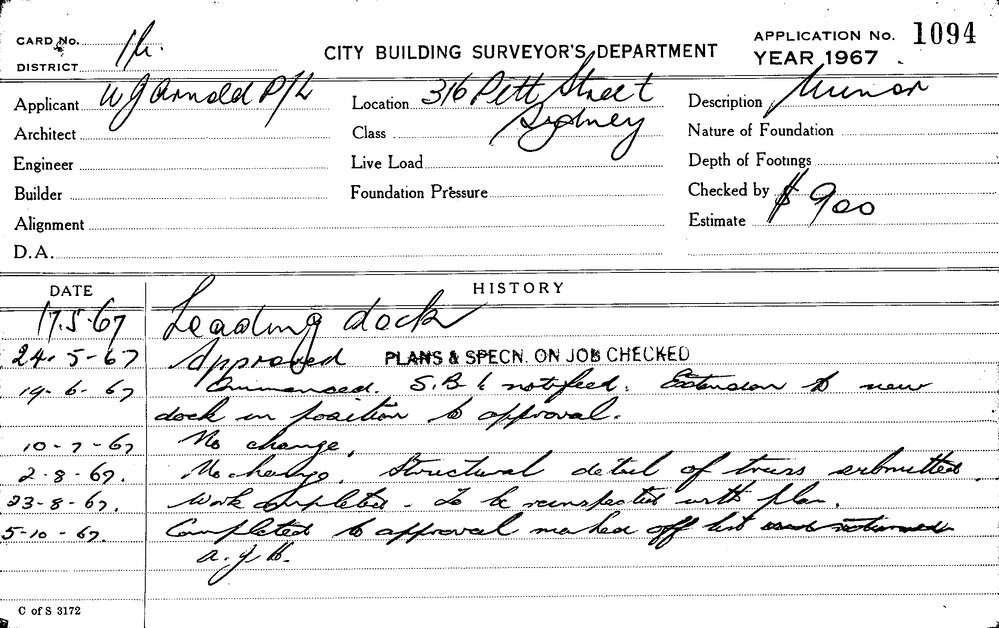 CARD No.
DISTRICT
CITY BUILDING SURVEYOR'S DEPARTMENT
APPLICATION No. 1094
YEAR 1967
Applicant W J Arnold P/L
Location 316 Pitt Street
Sydney
Description Minor
Architect
Class
Nature of Foundation
Engineer
Live Load
Depth of Footings
Builder
Foundation Pressure
Checked by
Alignment
Estimate $ 900
D.A.
DATE
HISTORY
17.5.67 Loading dock
24.5-67 Approved PLANS & SPECN. ON JOB CHECKED
19-6-67 Commenced. S.B. notified. Extension to new
dock in position to approval.
10-7-67 No change.
2-8-67. No change. Structural detail of truss submitted
23-8-67. Work completed - To be reinspected with plan.
5-10-67. Completed to approval marked off list
A.J.H.
C of S 3172